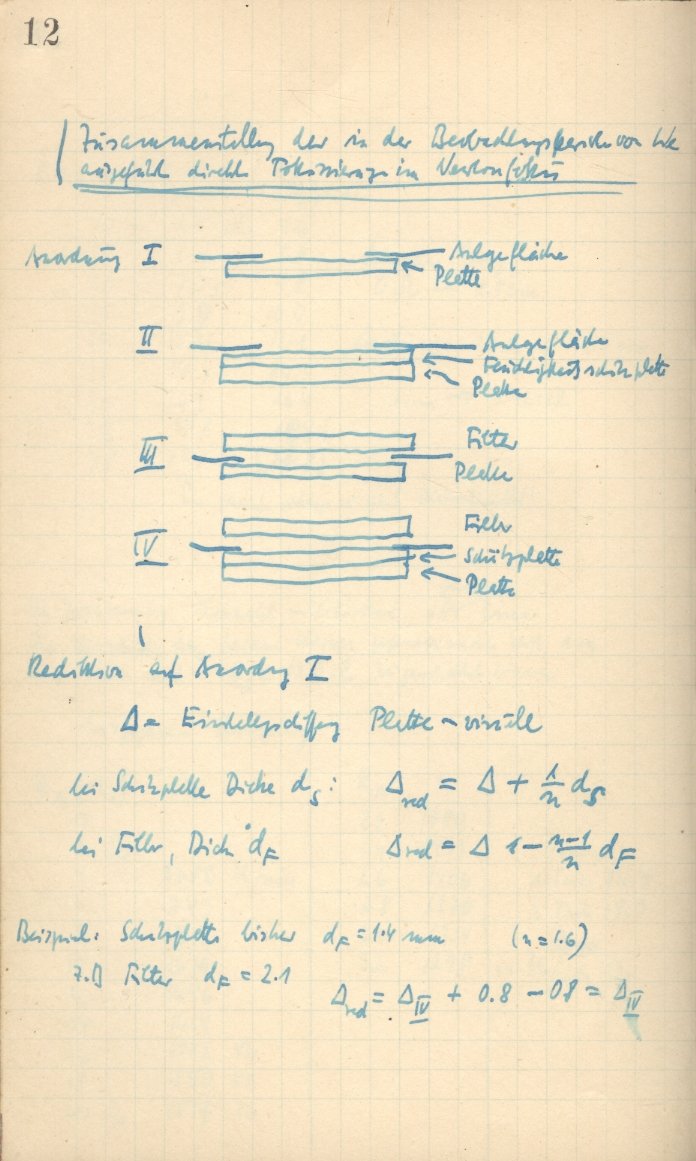 12
Zusammenstellung der in der Beobachtungsperiode von We
ausgeführte direkte Fokussierungen im Newtonfokus
Anordnung I Anlegefläche
Platte
II Anlegefläche
Feuchtigkeitsschutzplatte
Platte
III Filter
Platte
IV Filter
Schutzplatte
Platte
Reduktion auf Anordng I
Δ = Einstellungsdifferenz Platte – visuell
bei Schutzplatte Dicke dS: Δred = Δ + 1/n dS
bei Filter, Dicke dF Δred = Δ 1 – n–1/n dF
Beispiel: Schutzplatte bisher dF = 1.4 mm (n = 1.6)
z.B Filter dF = 2.1
Δred = ΔIV + 0.8 – 08 = ΔIV